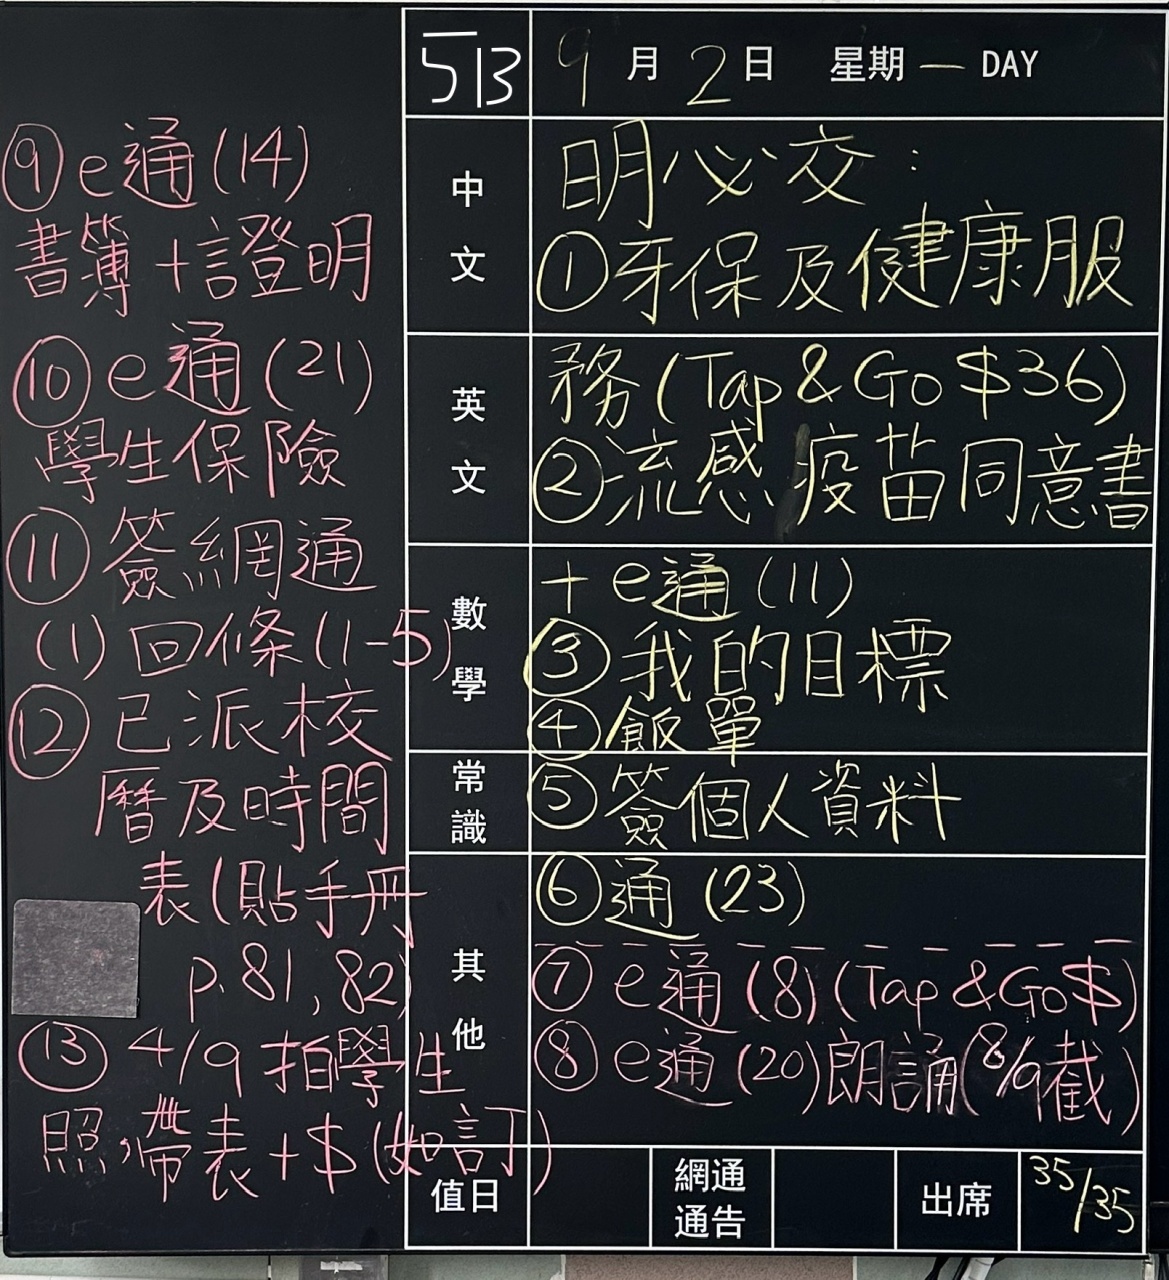 513 9月2日 星期一 DAY
中文
明必交：
①牙保及健康服
英文
務(Tap & Go $36)
②流感疫苗同意書
數學
+e通(11)
③我的目標
④飯單
常識
⑤簽個人資料
其他
⑥通(23)
⑦e通(8)(Tap & Go $)
⑧e通(20)朗誦(8/9截)
值日
網通
通告
出席
35/35
⑨e通(14)
書簿+證明
⑩e通(21)
學生保險
⑪簽網通
(1)回條(1-5)
⑫已派校
曆及時間
表(貼手冊
p.81,82)
⑬4/9拍學生
照,帶表+$(如訂)